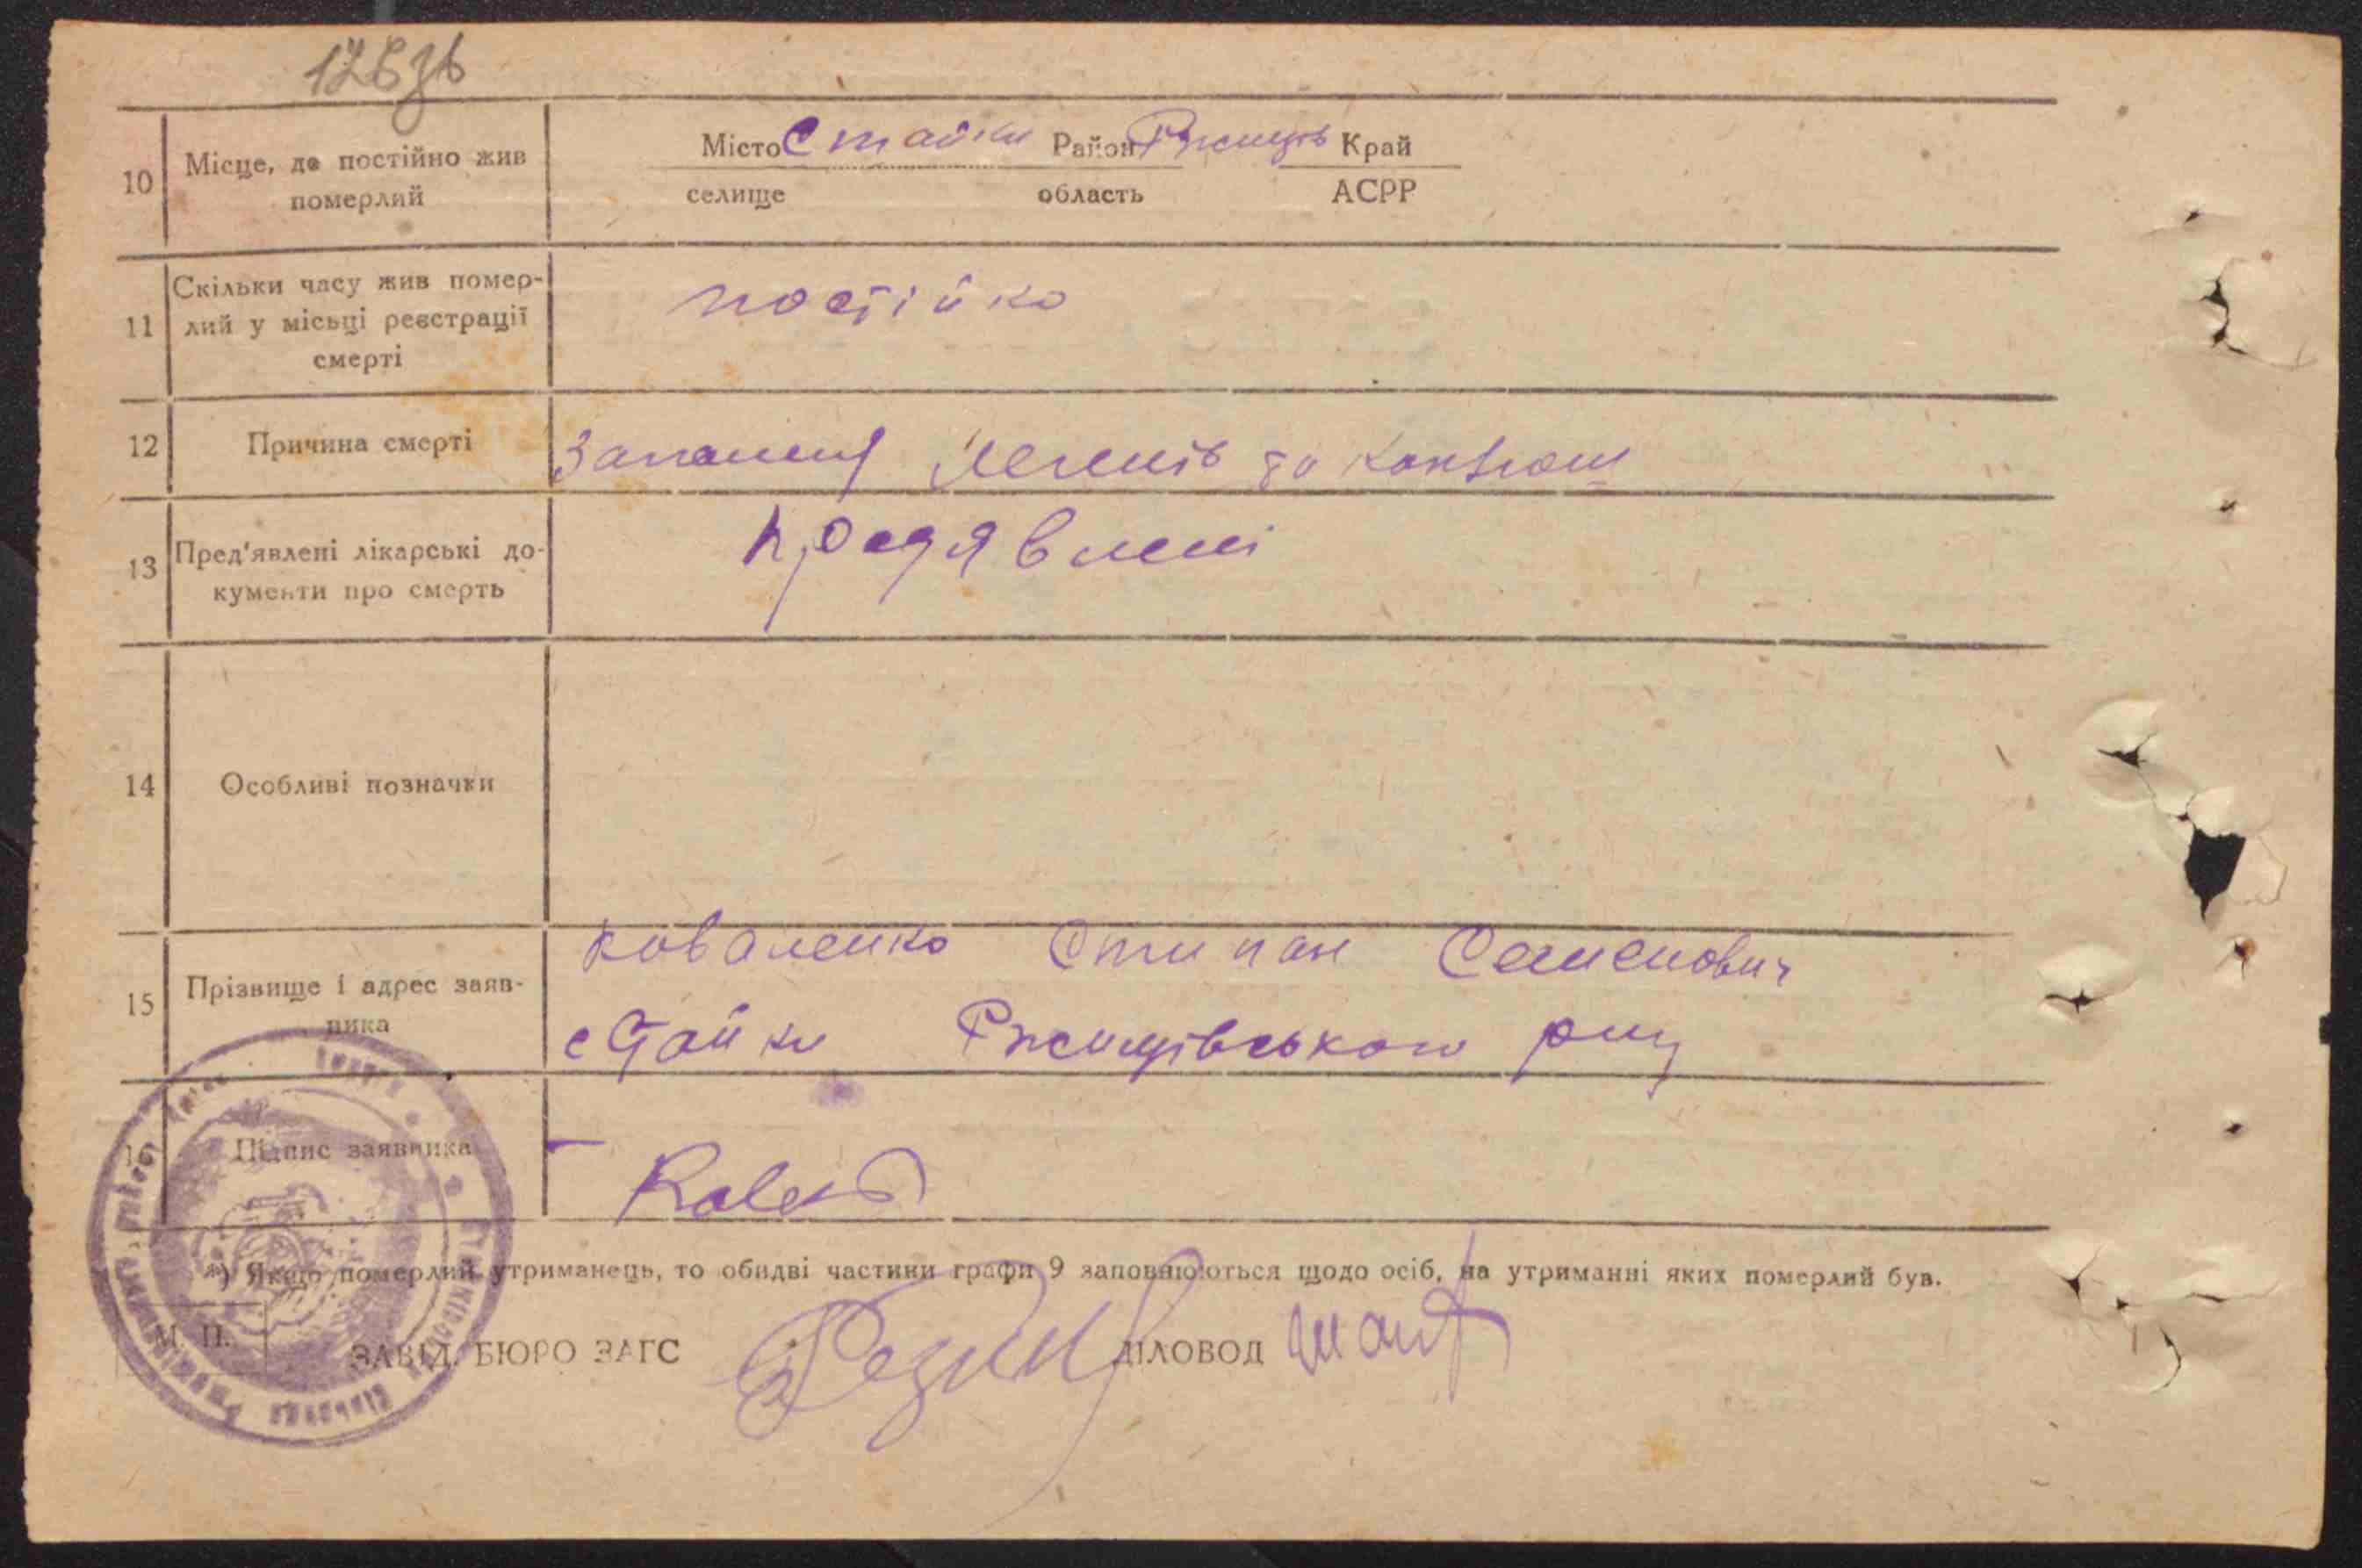 128зв
10 Місце, де постійно жив померлий
Місто Стайки Район Ржищів Край
селище область АСРР
11 Скільки часу жив помер-
лий у місьці реєстрації
смерті
постійко
12 Причина смерті
Запаленя Легенів та
13 Пред'явлені лікарські до-
кументи про смерть
предявлені
14 Особливі позначки
15 Прізвище і адрес заяв-
ника
Коваленко Степан Семенович
с Стайки Ржищівського
16 Підпис заявника
*) Якщо померлий утриманець, то обидві частини графи 9 заповнюються щодо осіб, на утриманні яких померлий був.
М. П.
ЗАВІД. БЮРО ЗАГС ДІЛОВОД